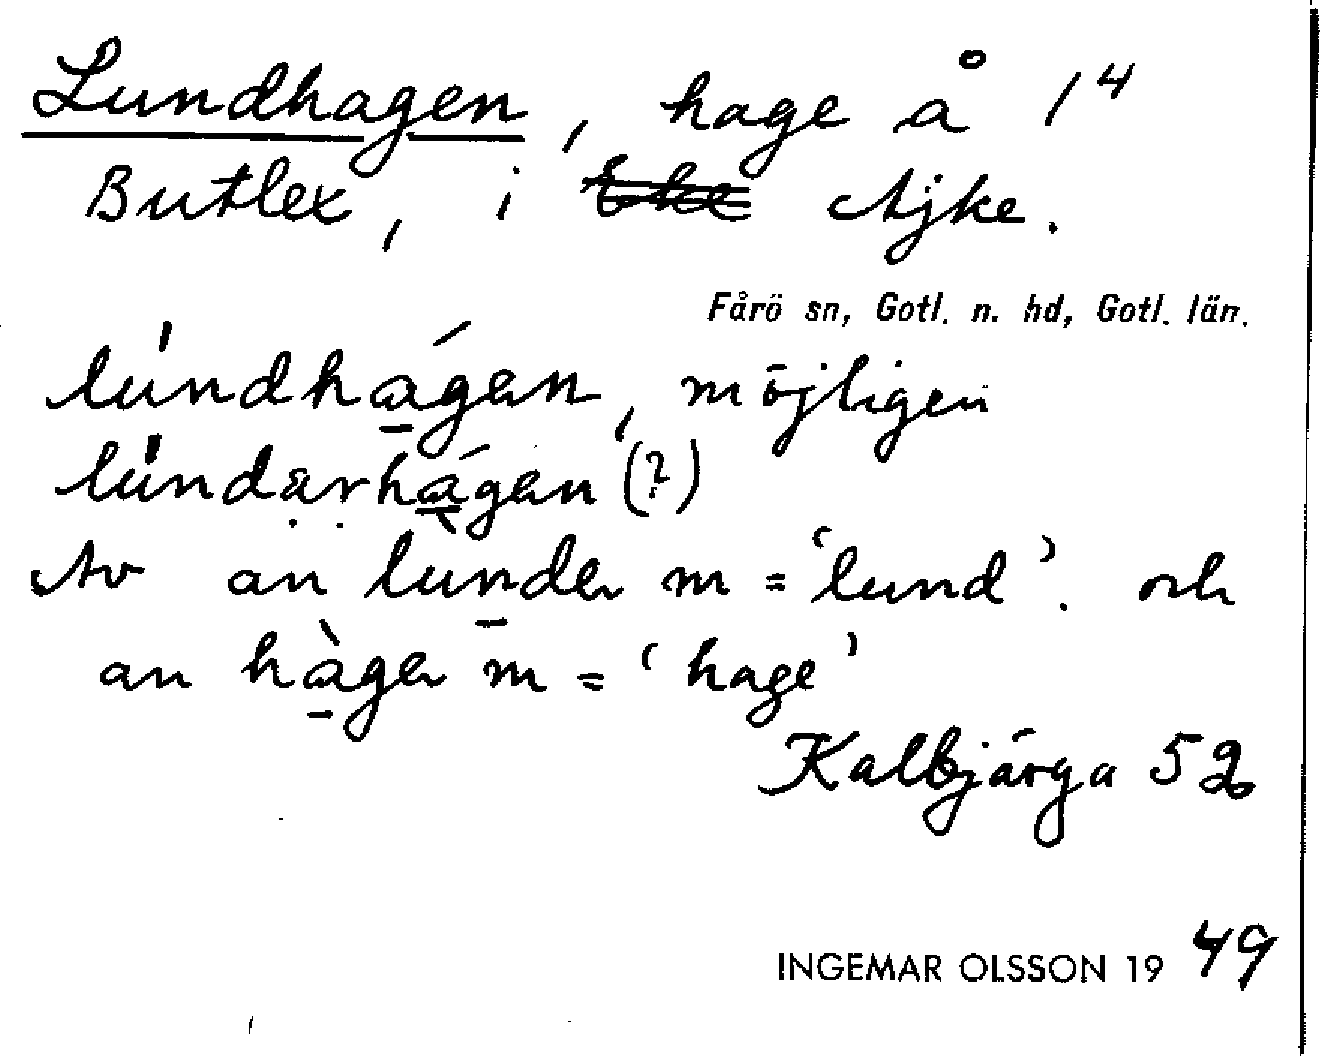 Lundhagen, hage å 1⁴
Butlex, i ~~Eke~~ Ajke.
Fårö sn, Gotl. n. hd, Gotl. län.
lúndha̱gən, möjligen
lúndərha̱gən (?)
Av an lùndər m = 'lund'. och
an hà̱gər m = 'hage'
Kalbjärga 52
INGEMAR OLSSON 1949